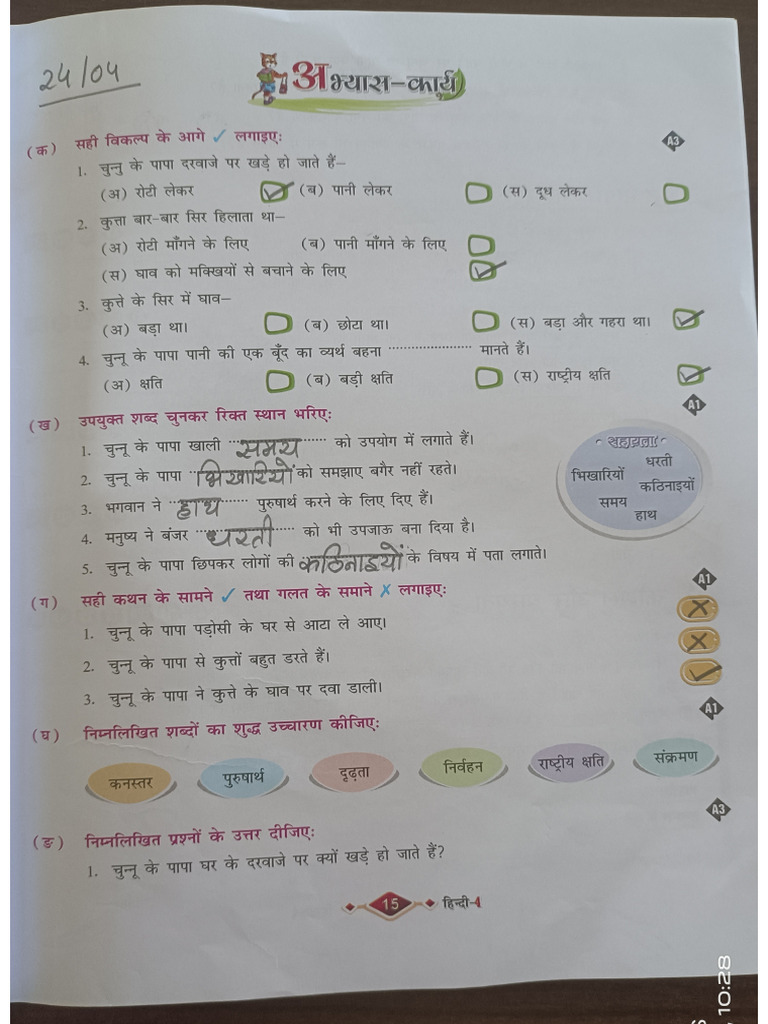 24/04
अभ्यास-कार्य
(क) सही विकल्प के आगे ✓ लगाइए:
A3
1. चुन्नु के पापा दरवाजे पर खड़े हो जाते हैं–
(अ) रोटी लेकर ✓ (ब) पानी लेकर (स) दूध लेकर
2. कुत्ता बार-बार सिर हिलाता था–
(अ) रोटी माँगने के लिए (ब) पानी माँगने के लिए
(स) घाव को मक्खियों से बचाने के लिए ✓
3. कुत्ते के सिर में घाव–
(अ) बड़ा था। (ब) छोटा था। (स) बड़ा और गहरा था। ✓
4. चुन्नू के पापा पानी की एक बूँद का व्यर्थ बहना ..................... मानते हैं।
(अ) क्षति (ब) बड़ी क्षति (स) राष्ट्रीय क्षति ✓
A1
(ख) उपयुक्त शब्द चुनकर रिक्त स्थान भरिए:
1. चुन्नू के पापा खाली समय को उपयोग में लगाते हैं।
2. चुन्नू के पापा भिखारियों को समझाए बगैर नहीं रहते।
3. भगवान ने हाथ पुरुषार्थ करने के लिए दिए हैं।
4. मनुष्य ने बंजर धरती को भी उपजाऊ बना दिया है।
5. चुन्नू के पापा छिपकर लोगों की कठिनाइयों के विषय में पता लगाते।
सहायता
धरती
भिखारियों
कठिनाइयों
समय
हाथ
A1
(ग) सही कथन के सामने ✓ तथा गलत के समाने ✗ लगाइए:
1. चुन्नू के पापा पड़ोसी के घर से आटा ले आए। ✗
2. चुन्नू के पापा से कुत्तों बहुत डरते हैं। ✗
3. चुन्नू के पापा ने कुत्ते के घाव पर दवा डाली। ✓
A1
(घ) निम्नलिखित शब्दों का शुद्ध उच्चारण कीजिए:
कनस्तर पुरुषार्थ दृढ़ता निर्वहन राष्ट्रीय क्षति संक्रमण
A3
(ङ) निम्नलिखित प्रश्नों के उत्तर दीजिए:
1. चुन्नू के पापा घर के दरवाजे पर क्यों खड़े हो जाते हैं?
15 हिन्दी-4
10:28